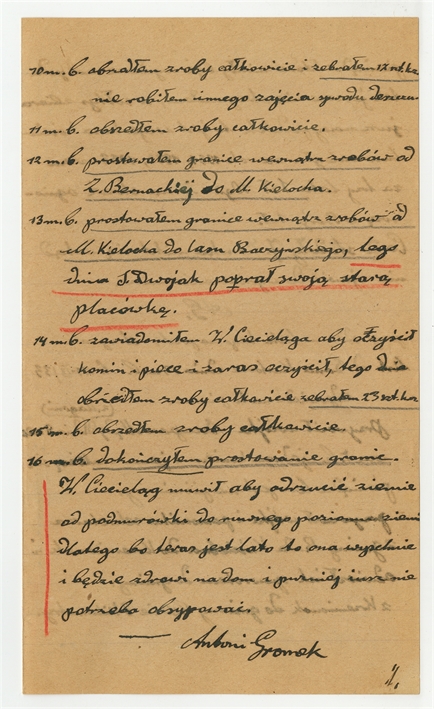 10 m. b. obszedłem zroby całkowicie i zebrałem 17 szt. kz.
nie robiłem innego zajęcia z powodu deszczu.
11 m. b. obszedłem zroby całkowicie.
12 m. b. prostowałem granice wewnątrz zrobów od
Z. Bernackiej do M. Kielocha.
13 m. b. prostowałem granice wewnątrz zrobów od
M. Kielocha do lasu Baczyńskiego, tego
dnia J. Dwojak poprał swoją starą
placówkę.
14 m. b. zawiadomiłem W. Ciecieląga aby oczyścił
komin i piece i zaras oczyścił, tego dnia
obszedłem zroby całkowicie zebrałem 23 szt. kz.
15 m. b. obszedłem zroby całkowicie.
16 m. b. dokończyłem prostowanie granic.
W. Ciecieląg muwił aby odrzucić ziemie
od podmurówki doruwnego poziomu ziemi
dlatego bo teras jest lato to ona wyschnie
i będzie zdrowi na dom i puzniej
potrzeba obsypować.
Antoni Gromek